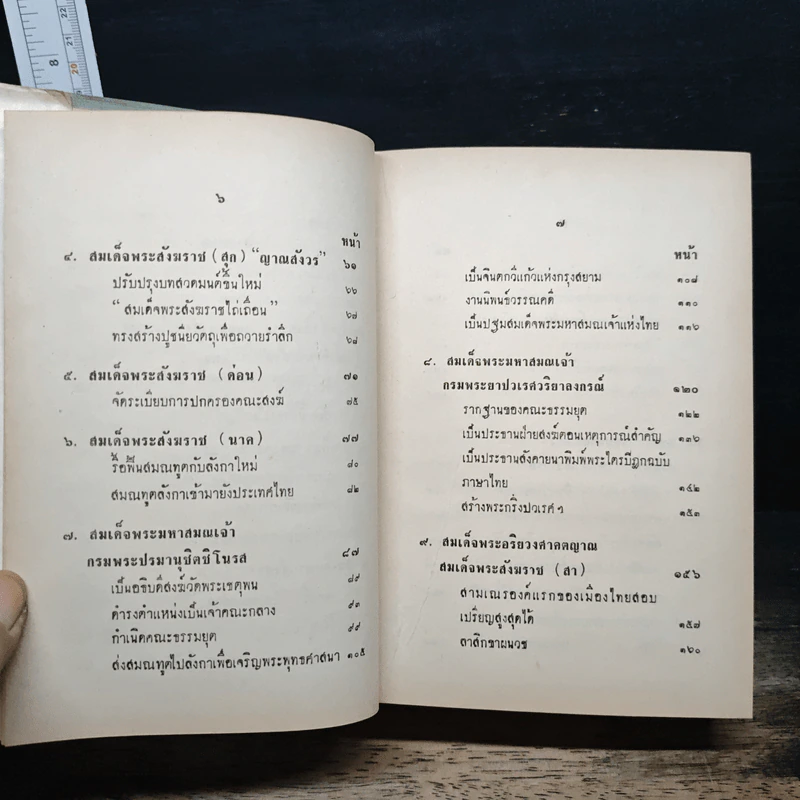 8
22
21
20
๖
หน้า
๔. สมเด็จพระสังฆราช (สุก) “ญาณสังวร” ๖๑
ปรับปรุงบทสวดมนต์ขึ้นใหม่ ๖๖
“สมเด็จพระสังฆราชไก่เถื่อน” ๖๗
ทรงสร้างปูชนียวัตถุเพื่อถวายรำลึก ๖๘
๕. สมเด็จพระสังฆราช (ด่อน) ๗๑
จัดระเบียบการปกครองคณะสงฆ์ ๗๕
๖. สมเด็จพระสังฆราช (นาค) ๗๗
รื้อฟื้นสมณทูตกับลังกาใหม่ ๘๐
สมณทูตลังกาเข้ามายังประเทศไทย ๘๒
๗. สมเด็จพระมหาสมณเจ้า
กรมพระปรมานุชิตชิโนรส ๘๗
เป็นอธิบดีสงฆ์วัดพระเชตุพน ๘๙
ดำรงตำแหน่งเป็นเจ้าคณะกลาง ๙๓
กำเนิดคณะธรรมยุต ๙๙
ส่งสมณทูตไปลังกาเพื่อเจริญพระพุทธศาสนา ๑๐๕
๗
หน้า
เป็นจินตกวีแก้วแห่งกรุงสยาม ๑๐๘
งานนิพนธ์วรรณคดี ๑๑๐
เป็นปฐมสมเด็จพระมหาสมณเจ้าแห่งไทย ๑๑๖
๘. สมเด็จพระมหาสมณเจ้า
กรมพระยาปวเรศวริยาลงกรณ์ ๑๒๐
รากฐานของคณะธรรมยุต ๑๒๒
เป็นประธานฝ่ายสงฆ์ตอนเหตุการณ์สำคัญ ๑๓๖
เป็นประธานสังคายนาพิมพ์พระไตรปิฎกฉบับ
ภาษาไทย ๑๔๒
สร้างพระกริ่งปวเรศฯ ๑๕๓
๙. สมเด็จพระอริยวงศาคตญาณ
สมเด็จพระสังฆราช (สา) ๑๕๖
สามเณรองค์แรกของเมืองไทยสอบ
เปรียญสูงสุดได้ ๑๕๗
ลาสิกขาผนวช ๑๖๐